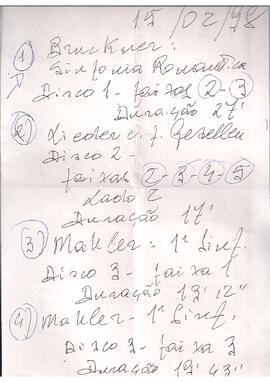 15/02/98
1 Bruckner:
Sinfonia Romantica
Disco 1 - faixas 2-3
Duração 27'
2 Lieder e. f. Gesellen
Disco 2 -
faixas 2-3-4-5
Lado 2
Duração 17'
3 Mahler: 1ª Sinf.
Disco 3 - faixa 1
Duração 13' 12"
4) Mahler - 1ª Sinf.
Disco 3 - faixa 3
Duração 13' 43"